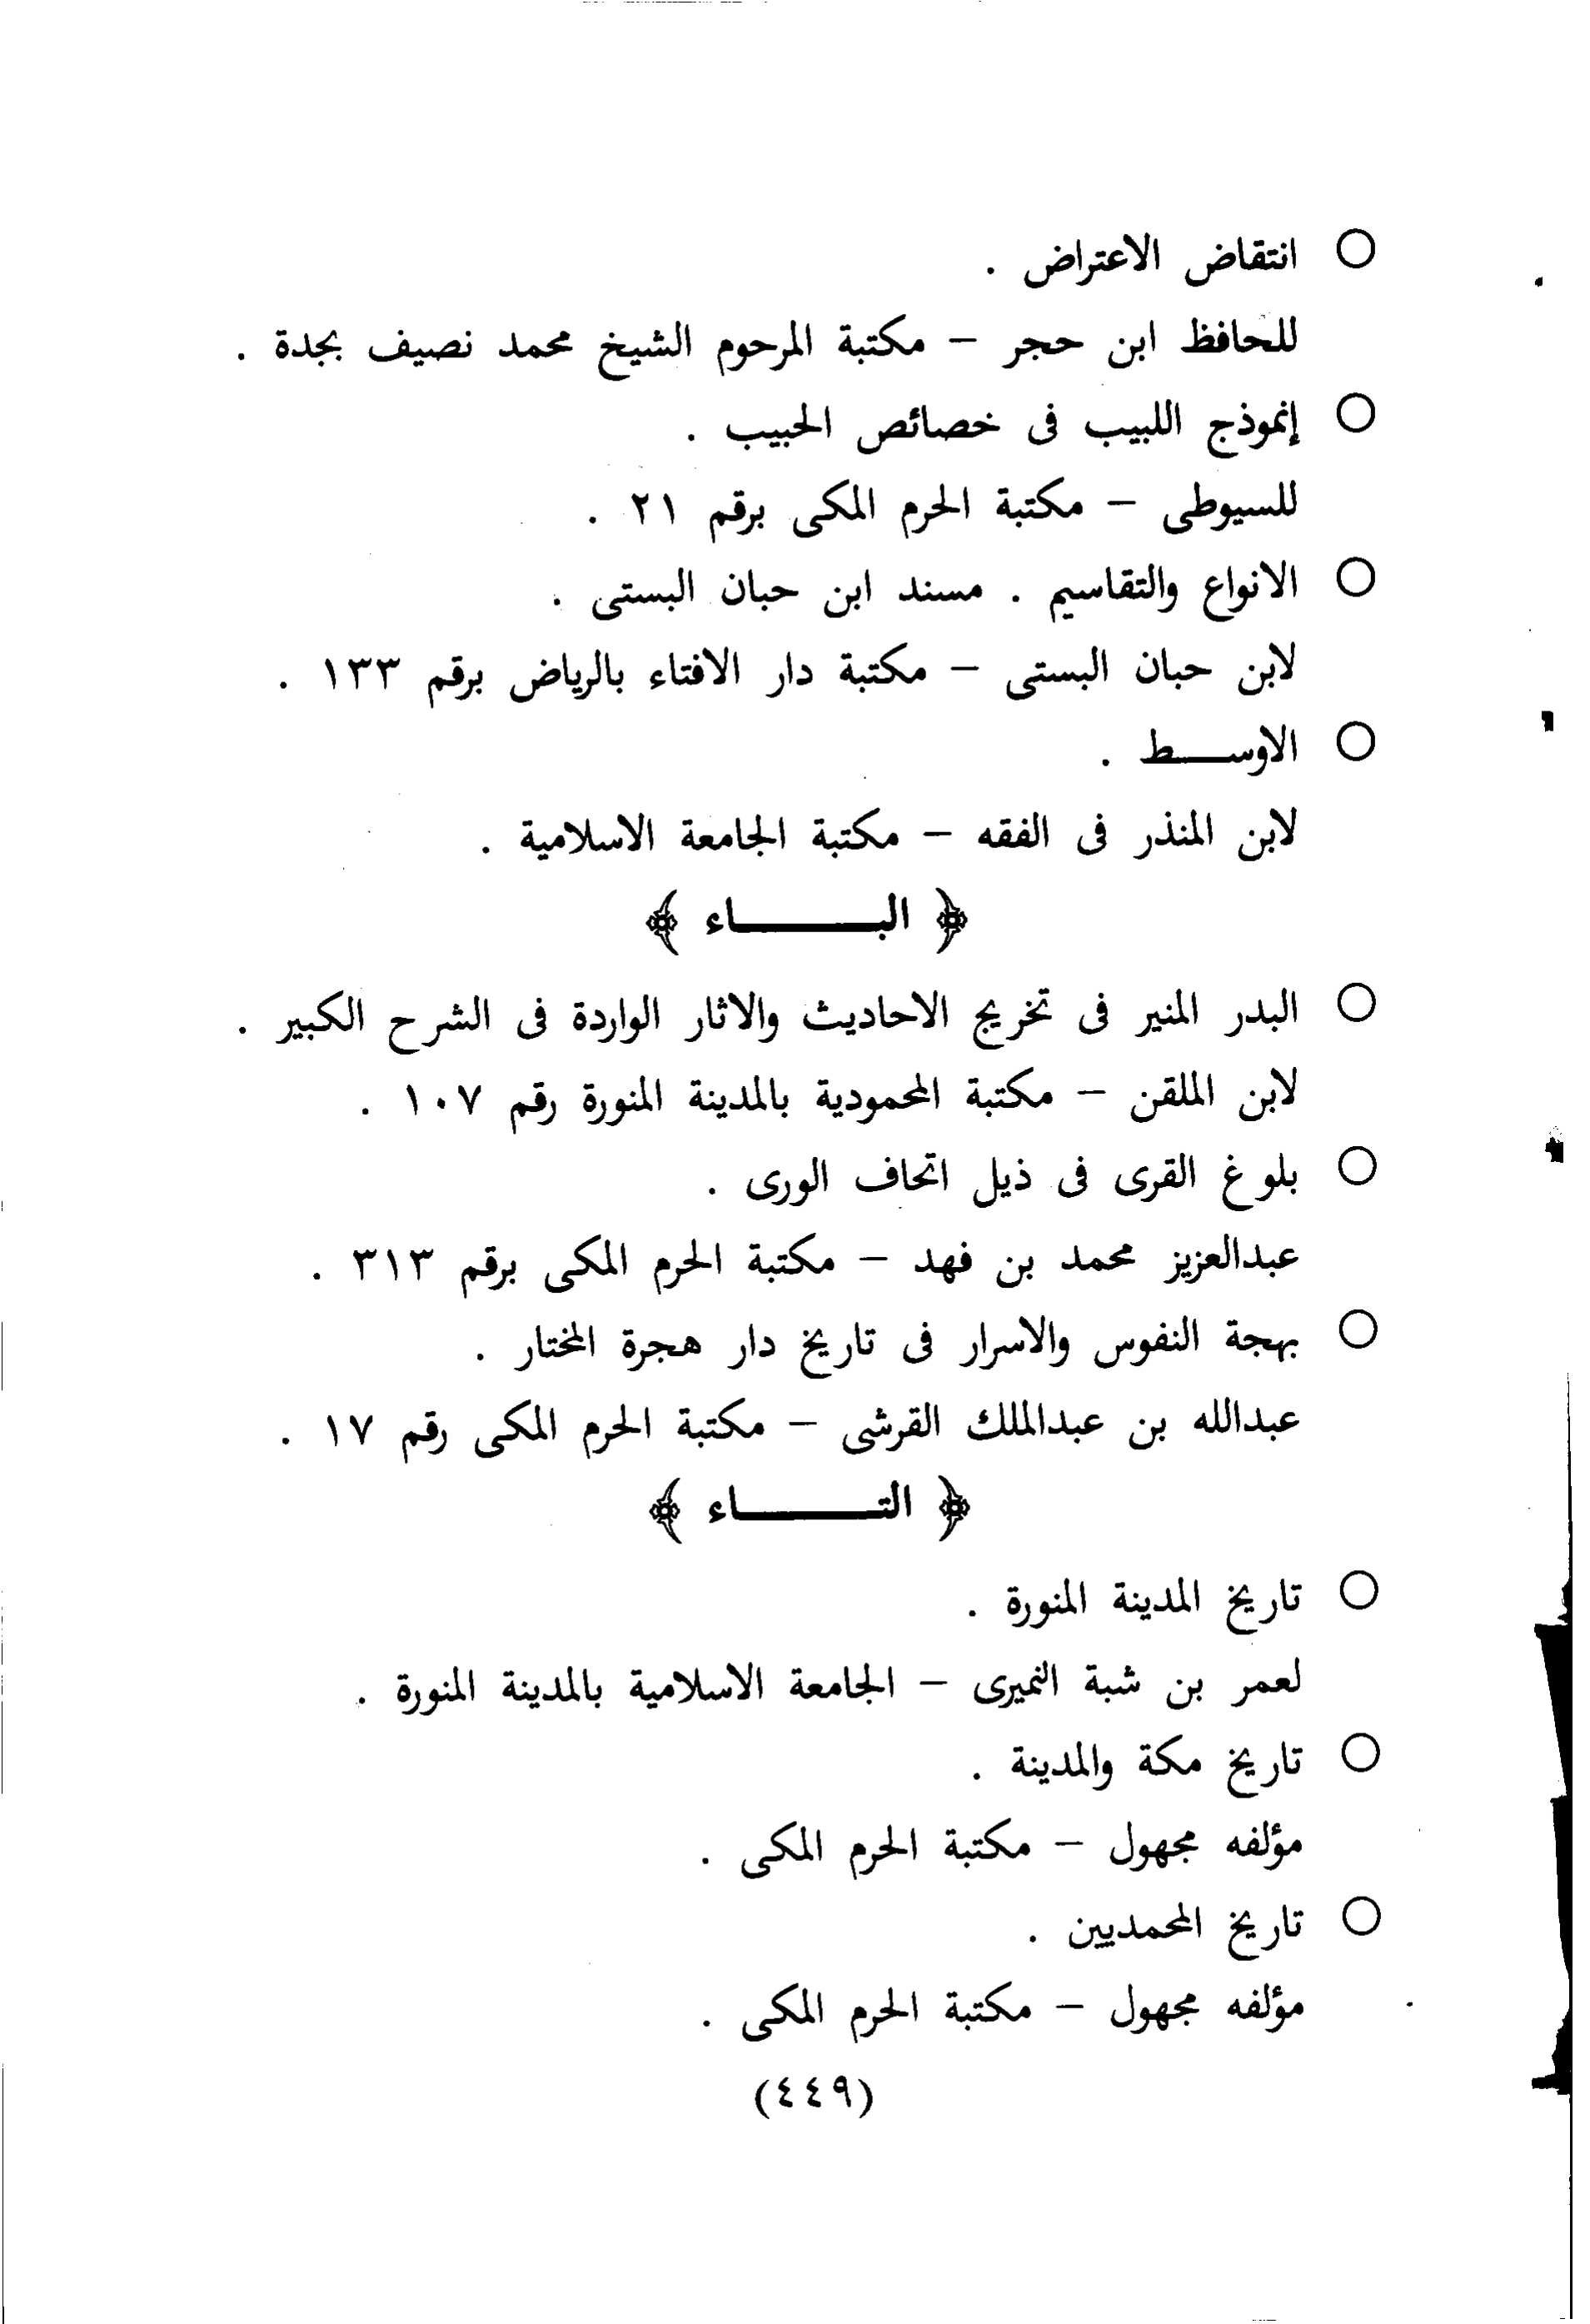 ○ انتقاض الاعتراض .
للحافظ ابن حجر – مكتبة المرحوم الشيخ محمد نصيف بجدة .
○ إنموذج اللبيب فى خصائص الحبيب .
للسيوطى – مكتبة الحرم المكى برقم ٢١ .
○ الانواع والتقاسيم . مسند ابن حبان البستى .
لابن حبان البستى – مكتبة دار الافتاء بالرياض برقم ١٣٣ .
○ الاوســـط .
لابن المنذر فى الفقه – مكتبة الجامعة الاسلامية .
﴿ البـــــــاء ﴾
○ البدر المنير فى تخريج الاحاديث والاثار الواردة فى الشرح الكبير .
لابن الملقن – مكتبة المحمودية بالمدينة المنورة رقم ١٠٧ .
○ بلوغ القرى فى ذيل اتحاف الورى .
عبدالعزيز محمد بن فهد – مكتبة الحرم المكى برقم ٣١٣ .
○ بهجة النفوس والاسرار فى تاريخ دار هجرة المختار .
عبدالله بن عبدالملك القرشى – مكتبة الحرم المكى رقم ١٧ .
﴿ التـــــــاء ﴾
○ تاريخ المدينة المنورة .
لعمر بن شبة النميرى – الجامعة الاسلامية بالمدينة المنورة .
○ تاريخ مكة والمدينة .
مؤلفه مجهول – مكتبة الحرم المكى .
○ تاريخ المحمديين .
مؤلفه مجهول – مكتبة الحرم المكى .
(٤٤٩)